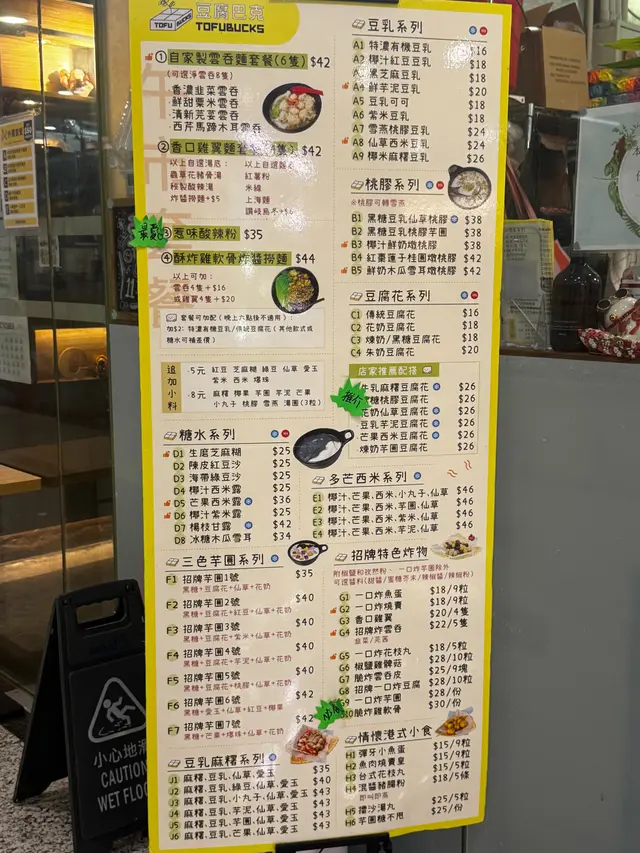 豆腐巴克
TOFU BUCKS
TOFUBUCKS
①自家製雲吞麵套餐(6隻) $42
(可選淨雲吞8隻)
·香濃韭菜雲吞
·鮮甜粟米雲吞
·清新芫荽雲吞
·西芹馬蹄木耳雲吞
②香口雞翼麵套 $42
以上自選湯底:
蟲草花豬骨湯
秘製酸辣湯
炸醬撈麵+$5
以上自選
紅薯粉
米線
上海麵
③惹味酸辣粉 $35
④酥炸雞軟骨炸醬撈麵 $44
以上可加:
雲吞4隻+$16
或雞翼4隻+$20
套餐可加配(晚上六點後不適用):
加$2: 特濃有機豆乳/傳統豆腐花(其他款式或
糖水可補差價)
追加小料
·5元 紅豆 芝麻糊 綠豆 仙草 愛玉
紫米 西米 爆珠
·8元 麻糬 椰果 芋圓 芋泥 芒果
小丸子 桃膠 雪燕 湯圓(3粒)
糖水系列
D1 生磨芝麻糊 $25
D2 陳皮紅豆沙 $25
D3 海帶綠豆沙 $25
D4 椰汁西米露 $25
D5 芒果西米露 $36
D6 椰汁紫米露 $25
D7 楊枝甘露 $42
D8 冰糖木瓜雪耳 $34
三色芋圓系列
F1 招牌芋圓1號 $35
黑糖+豆腐花+仙草+花奶
F2 招牌芋圓2號 $40
黑糖+豆腐花+紅豆+仙草+花奶
F3 招牌芋圓3號 $40
黑糖+豆腐花+紫米+仙草+花奶
F4 招牌芋圓4號 $40
黑糖+豆腐花+芋泥+仙草+花奶
F5 招牌芋圓5號 $40
黑糖+豆腐花+桃膠+仙草+花奶
F6 招牌芋圓6號 $42
黑糖+愛玉+仙草+紅豆+椰果
F7 招牌芋圓7號 $42
黑糖+芒果+爆珠+仙草+花奶
豆乳麻糬系列
J1 麻糬、豆乳、仙草、愛玉 $35
J2 麻糬、豆乳、綠豆、仙草、愛玉 $40
J3 麻糬、豆乳、小丸子、仙草、愛玉 $43
J4 麻糬、豆乳、芋泥、仙草、愛玉 $43
J5 麻糬、豆乳、芋圓、仙草、愛玉 $43
J6 麻糬、豆乳、芒果、仙草、愛玉 $43
豆乳系列
A1 特濃有機豆乳 $16
A2 椰汁紅豆豆乳 $18
A3 黑芝麻豆乳 $18
A4 鮮芋泥豆乳 $20
A5 豆乳可可 $18
A6 紫米豆乳 $18
A7 雪燕桃膠豆乳 $24
A8 仙草西米豆乳 $24
A9 椰米麻糬豆乳 $26
桃膠系列
※桃膠可轉雪燕
B1 黑糖豆乳仙草桃膠 $38
B2 黑糖豆乳桃膠芋圓 $38
B3 椰汁鮮奶燉桃膠 $38
B4 紅棗蓮子桂圓燉桃膠 $42
B5 鮮奶木瓜雪耳燉桃膠 $42
豆腐花系列
C1 傳統豆腐花 $16
C2 花奶豆腐花 $18
C3 煉奶/黑糖豆腐花 $18
C4 朱奶豆腐花 $20
店家推薦配搭
推介
牛乳麻糬豆腐花 $26
糖桃膠豆腐花 $26
花奶仙草豆腐花 $26
·豆乳芋泥豆腐花 $26
·芒果西米豆腐花 $26
·煉奶芋圓豆腐花 $26
多芒西米系列
E1 椰汁、芒果、西米、小丸子、仙草 $46
E2 椰汁、芒果、西米、芋圓、仙草 $46
E3 椰汁、芒果、西米、紫米、仙草 $46
E4 椰汁、芒果、西米、芋泥、仙草 $46
招牌特色炸物
附椒鹽和孜然粉、一口炸芋圓除外
G1 一口炸魚蛋 $18/9粒
G2 一口炸燒賣 $18/9粒
G3 香口雞翼 $20/4隻
G4 招牌炸雲吞 $22/5隻
韭菜/芫茜
G5 一口炸花枝丸 $18/5粒
G6 椒鹽雞髀菇 $28/10粒
G7 脆炸雲吞皮 $25/9塊
G8 招牌一口炸豆腐 $28/10粒
G9 一口炸芋圓 $28/份
G10 脆炸雞軟骨 $30/份
情懷港式小食
H1 彈牙小魚蛋 $15/9粒
H2 魚肉燒賣皇 $15/5粒
H3 台式花枝丸 $15/5粒
H4 混醬豬腸粉 $18/5條
即叫即蒸
H5 擂沙湯丸 $25/5粒
H6 芋圓糖不甩 $25/份
小心地滑
CAUTION
WET FLOO